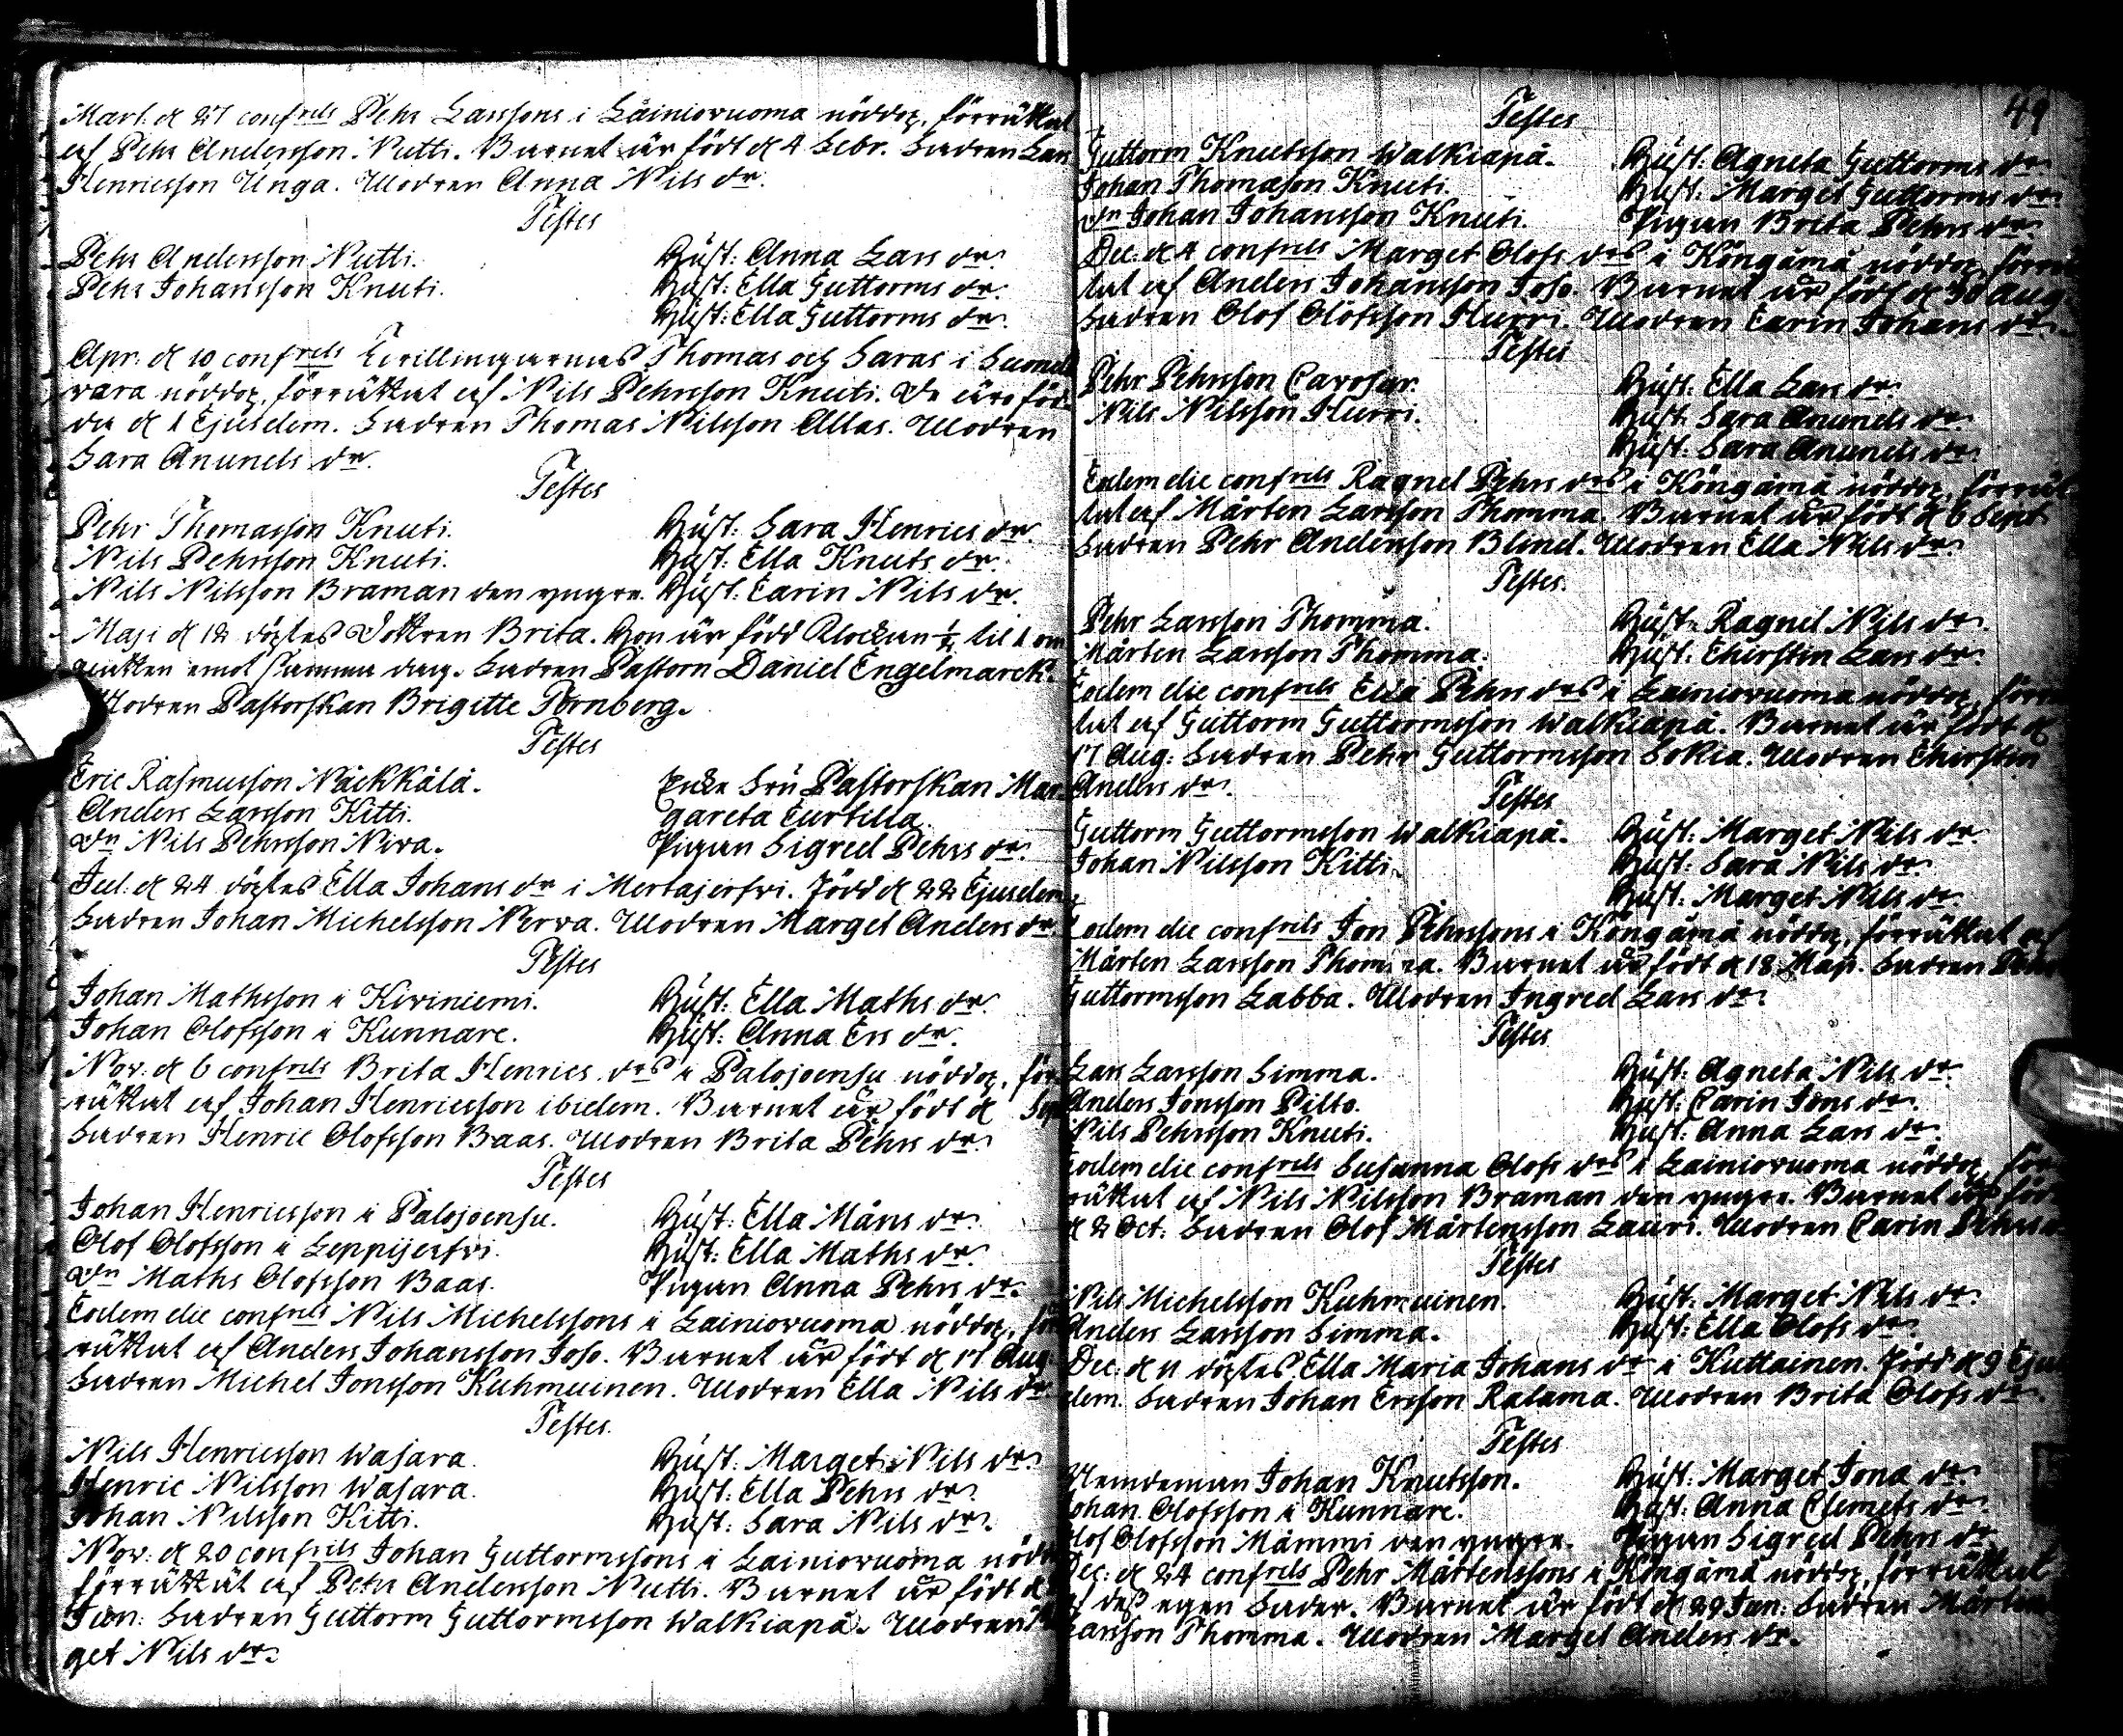 Mart. d 27 confrels Pehr Larssons i Lainiovuoma nöddop, förrättat
af Pehr Andersson Nutti. Barnet är födt d 4 Febr. Fadren Lars
Henricsson Unga. Modren Anna Nils dr.
Testes
Pehr Andersson Nutti. Hust: Anna Lars dr.
Pehr Johansson Knuti. Hust: Ella Guttorms dr.
Hust: Ella Guttorms dr.
Apr: d 10 confrels Tvillingarnas Thomas och Saras i Suondavara
vara nöddop, förrättat af Nils Pehrsson Knuti. De äro föd-
da d 1 Ejusdem. Fadren Thomas Nilsson Allas. Modren
Sara Anunds dr.
Testes
Pehr Thomasson Knuti. Hust: Sara Henrics dr
Nils Pehrsson Knuti. Hust: Ella Knuts dr.
Nils Nilsson Braman den yngre. Hust: Carin Nils dr.
Maji d 12 döptes Dottren Brita. Hon är född Klockan til 1 om
natten emot samma dag. Fadren Pastorn Daniel Engelmarck.
Modren Pastorskan Brigitte Tornberg.
Testes
Eric Rasmusson Näckkälä. Enke Fru Pastorskan Mar-
Anders Larsson Kitti. gareta Curtilla.
Dn Nils Pehrsson Nirva. Pigan Sigred Pehrs dr.
Jul. d 24 döptes Ella Johans dr i Mertajerfvi. Född d 22 Ejusdem
Fadren Johan Michelsson Nerva. Modren Marget Anders dr.
Testes
Johan Mathsson i Kiviniemi. Hust: Ella Maths dr.
Johan Olofsson i Kunnare. Hust: Anna Ers dr.
Nov: d 6 confrels Brita Henrics drs i Palojoensu nöddop, för-
rättat af Johan Henricsson ibidem. Barnet är födt d Sep
Fadren Henric Olofsson Baas. Modren Brita Pehrs dr.
Testes
Johan Henricsson i Palojoensu. Hust: Ella Måns dr.
Olof Olofsson i Leppijerfvi. Hust: Ella Maths dr.
Dn Maths Olofsson Baas. Pigan Anna Pehrs dr.
Eodem die confrels Nils Michelssons i Lainiovuoma nöddop, för
rättat af Anders Johansson Joso. Barnet är födt d 17 Aug.
Fadren Michel Jonsson Kuhmuinen. Modren Ella Nils dr
Testes.
Nils Henricsson Wasara. Hust: Marget Nils dr.
Henric Nilsson Wasara. Hust: Ella Pehrs dr.
Johan Nilsson Kitti. Hust: Sara Nils dr.
Nov: d 20 confrels Johan Guttormssons i Lainiovuoma nödd
förrättat af Pehr Andersson Nutti. Barnet är födt d
Jun: Fadren Guttorm Guttormsson Walkiapä. Modren
get Nils dr.
49
Testes
Guttorm Knutsson Walkiapä. Hust: Agneta Guttorms dr.
Johan Thomasson Knuti. Hust: Marget Guttorms dr.
Dn Johan Johansson Knuti. Pigan Brita Pehrs dr.
Dec: d 4 confrels Marget Olofs drs i Köngämä nöddop, förrät
tat af Anders Johansson Joso. Barnet är födt d 30 Aug.
Fadren Olof Olofsson Hurri. Modren Carin Johans dr.
Testes
Pehr Pehrsson Hust: Ella Lars dr.
Nils Nilsson Hurri. Hust: Sara Anunds dr.
Hust: Sara Anunds dr.
Eodem die confrels Ragnel Pehrs drs i Köngämä nöddop, förrät
tat af Mårten Larsson Thomma. Barnet är födt d 6 Sept.
Fadren Pehr Andersson Blind. Modren Ella Nils dr.
Testes.
Pehr Larsson Thomma. Hust: Ragnel Nils dr.
Mårten Larsson Thomma. Hust: Chirstin Lars dr.
Eodem die confrels Ella Pehrs drs i Lainiovuoma nöddop, förrät
tat af Guttorm Guttormsson Walkiapä. Barnet är födt d
17 Aug: Fadren Pehr Guttormsson Sokia. Modren Chirstin
Anders dr.
Testes
Guttorm Guttormsson Walkiapä. Hust: Marget Nils dr.
Johan Nilsson Kitti. Hust: Sara Nils dr.
Hust: Marget Nils dr.
Eodem die confrels Jon Pehrssons i Köngämä nöddop, förrättat af
Mårten Larsson Thomma. Barnet är födt d 18 Maji. Fadren Pehr
Guttormsson Labba. Modren Ingred Lars dr.
Testes
Lars Larsson Simma. Hust: Agneta Nils dr.
Anders Jonsson Pilto. Hust: Carin Jons dr.
Nils Pehrsson Knuti. Hust: Anna Lars dr.
Eodem die confrels Susanna Olofs drs i Lainiovuoma nöddop, för
rättat af Nils Nilsson Braman den yngre. Barnet är födt
d 2 Oct: Fadren Olof Mårtensson Lauri. Modren Carin Pehrs
Testes
Nils Michelsson Kuhmuinen. Hust: Marget Nils dr.
Anders Larsson Simma. Hust: Ella Olofs dr.
Dec: d 11 döptes Ella Maria Johans dr i Kuttainen. Född d 9 Ejus
dem. Fadren Johan Ersson Ralama. Modren Brita Olofs dr.
Testes
Nemdeman Johan Knutsson. Hust: Marget Jona dr.
Johan Olofsson i Kunnare. Hust: Anna Clemets dr.
Olof Olofsson Mämmi den yngre. Pigan Sigred Pehrs dr.
Dec: d 24 confrels Pehr Mårtenssons i Köngämä nöddop, förrättat
af dess egen Fader. Barnet är födt d 29 Jun: Fadren Mårten
Larsson Thomma. Modren Marget Anders dr.